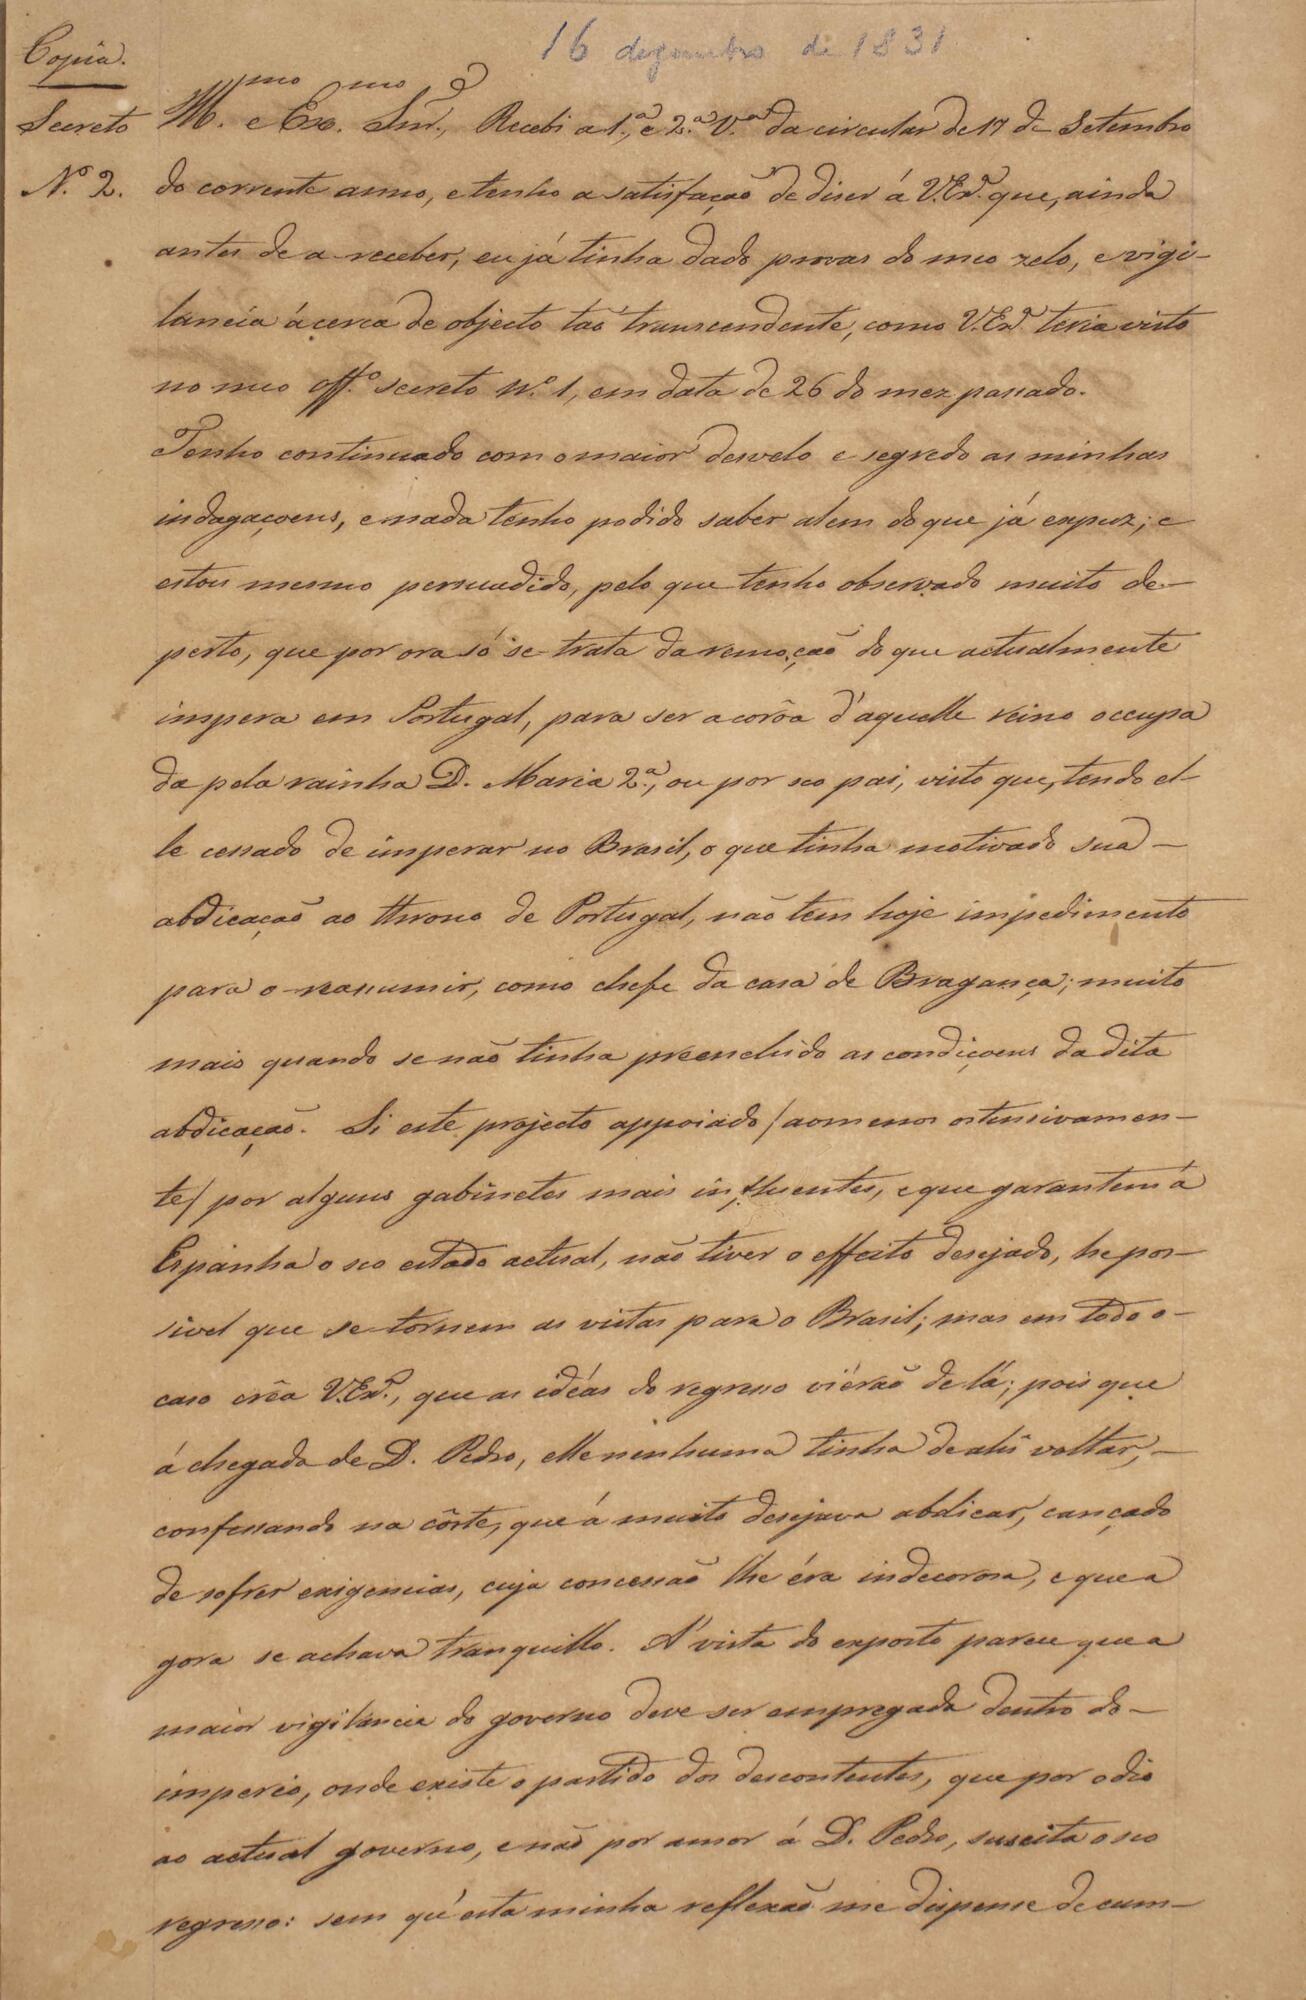 16 dezembro de 1831
Copia.
Secreto
N.º 2.
Ill.mo e Exo.mo Snr.e, Recebi a 1.ª, e 2.ª V.as da circular de 17 de Setembro
do corrente anno, e tenho a satisfação de diser á V.Exª. que, ainda
antes de a receber, eu já tinha dado provas do meo zelo, e vigi-
lancia ácerca de objecto taõ transcendente, como V.Exª. teria visto
no meo off.º secreto N.º 1, em data de 26 do mez passado.
Tenho continuado com o maior desvelo e segredo as minhas
indagaçoens, e nada tenho podido saber alem do que já expuz; e
estou mesmo persuadido, pelo que tenho observado muito de-
perto, que por ora só se trata da remoçaõ do que actualmente
impera em Portugal, para ser a corôa d'aquelle reino occupa
da pela rainha D. Maria 2.ª, ou por seo pai, visto que, tendo el-
le cessado de imperar no Brasil, o que tinha motivado sua-
abdicaçaõ ao throno de Portugal, não tem hoje impedimento
para o reasumir, como chefe da casa de Bragança; muito
mais quando se não tinha preenchido as condiçoens da dita
abdicaçaõ. Si este projecto appoiado /ao menos ostensivamen-
te/ por alguns gabinetes mais influentes, e que garantem á
Espanha o seo estado actual, não tiver o effeito desejado, he pos-
sivel que se tornem as vistas para o Brasil; mas em todo o-
caso crêa V.Exª., que as idéas do regresso viéraõ de lá; pois que
á chegada de D. Pedro, elle nenhuma tinha de ahi voltar,-
confessando na côrte, que á muito desejava abdicar, cançado
de sofrer exigencias, cuja concessaõ lhe éra indecorosa, e que a
gora se achava tranquillo. Á vista do exposto parece que a
maior vigilancia do governo deve ser empregada dentro do-
imperio, onde existe o partido dos descontentes, que por odio
ao actual governo, e não por amor á D. Pedro, suscita o seo
regresso: sem qu'esta minha reflexaõ me dispense de cum-